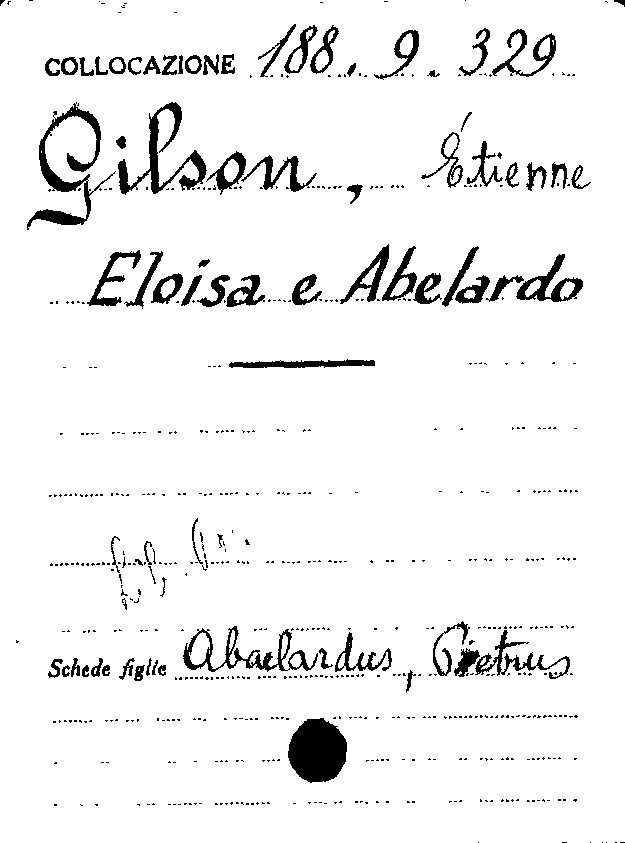 COLLOCAZIONE 188.9.329
Gilson, Étienne
Eloisa e Abelardo
Schede figlie Abaelardus, Pietrus